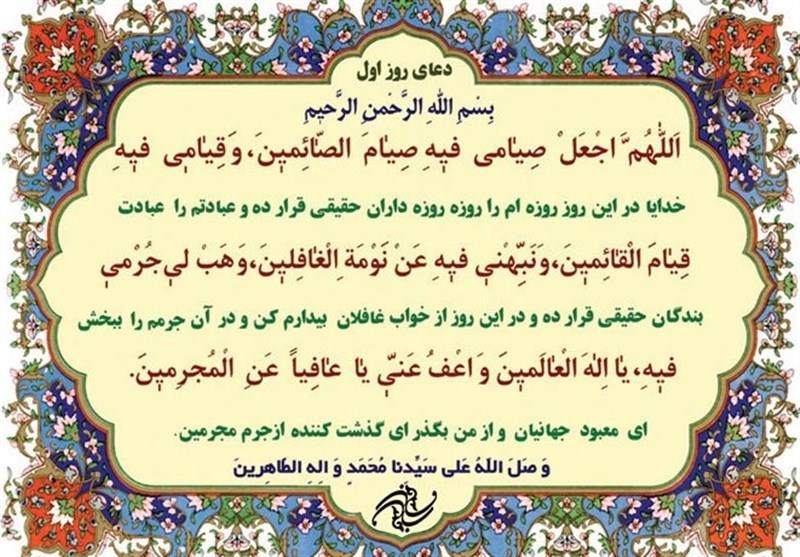 دعای روز اول
بِسْمِ اللهِ الرَّحْمنِ الرَّحیمِ
اَللّٰهُمَّ اجْعَلْ صِیٰامی فیٖهِ صِیٰامَ الصّٰائِمیٖنَ، وَقِیٰامیٖ فیٖهِ
خدایا در این روز روزه ام را روزه روزه داران حقیقی قرار ده و عبادتم را عبادت
قِیٰامَ الْقٰائِمیٖنَ، وَنَبِّهْنیٖ فیٖهِ عَنْ نَوْمَةِ الْغٰافِلیٖنَ، وَهَبْ لیٖ جُرْمیٖ
بندگان حقیقی قرار ده و در این روز از خواب غافلان بیدارم کن و در آن جرمم را ببخش
فیٖهِ، یٰا اِلٰهَ الْعٰالَمیٖنَ وَ اعْفُ عَنّیٖ یٰا عٰافِیاً عَنِ الْمُجرِمیٖنَ.
ای معبود جهانیان و از من بگذر ای گذشت کننده ازجرم مجرمین.
وَ صَلَ اللهُ عَلی سَیِّدنا مُحَمَدٍ وَ الِهِ الطاهِرینَ